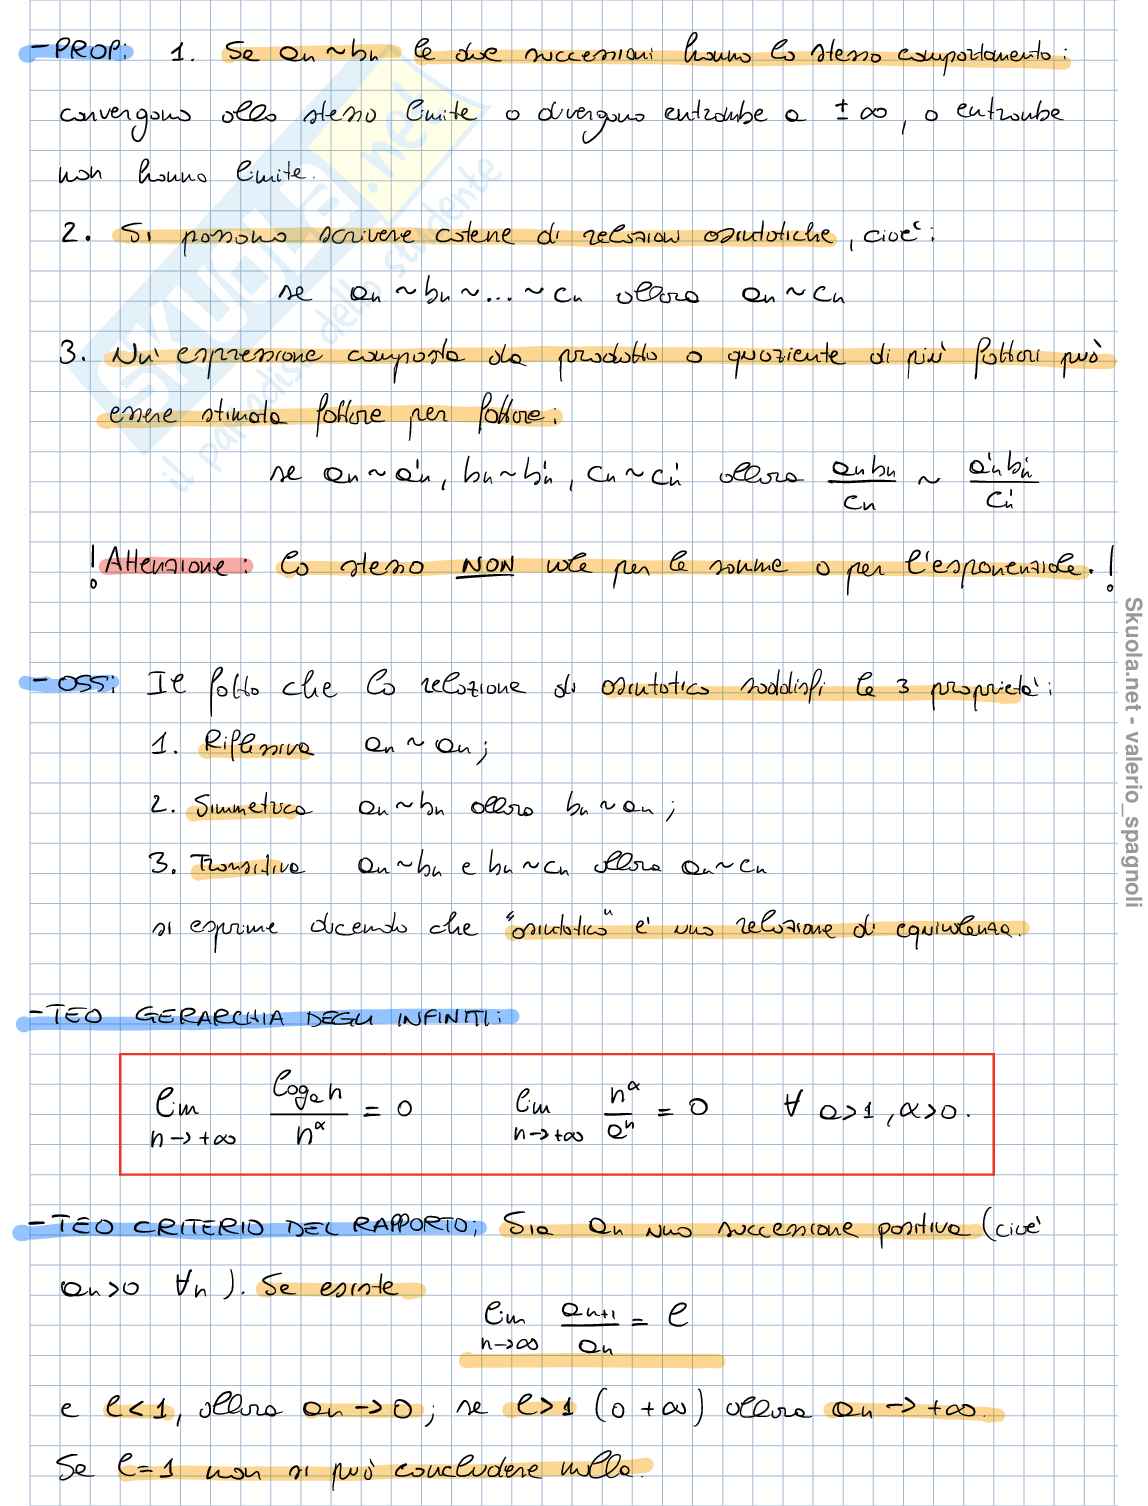 - PROP: 1. Se an ~ bn le due successioni hanno lo stesso comportamento:
convergono allo stesso limite o divergono entrambe a ± ∞, o entrambe
non hanno limite.
2. Si possono scrivere catene di relazioni asintotiche, cioè:
se an ~ bn ~ ... ~ cn allora an ~ cn
3. Un' espressione composta da prodotto o quoziente di più fattori può
essere stimata fattore per fattore:
se an ~ a'n, bn ~ b'n, cn ~ c'n allora an bn / cn ~ a'n b'n / c'n
! Attenzione: lo stesso NON vale per le somme o per l'esponenziale. !
- OSS: Il fatto che la relazione di asintotico soddisfi le 3 proprietà:
1. Riflessiva an ~ an;
2. Simmetrica an ~ bn allora bn ~ an;
3. Transitiva an ~ bn e bn ~ cn allora an ~ cn
si esprime dicendo che "asintotico" è una relazione di equivalenza.
- TEO GERARCHIA DEGLI INFINITI:
lim n→+∞ logₐn / n^α = 0 lim n→+∞ n^α / a^n = 0 ∀ a>1, α>0.
- TEO CRITERIO DEL RAPPORTO: Sia an una successione positiva (cioè
an>0 ∀n). Se esiste
lim n→∞ an+1 / an = l
e l<1, allora an → 0; se l>1 (o +∞) allora an → +∞.
Se l=1 non si può concludere nulla.
SKUOLA.net
il paradiso dello studente
Skuola.net - valerio_spagnoli